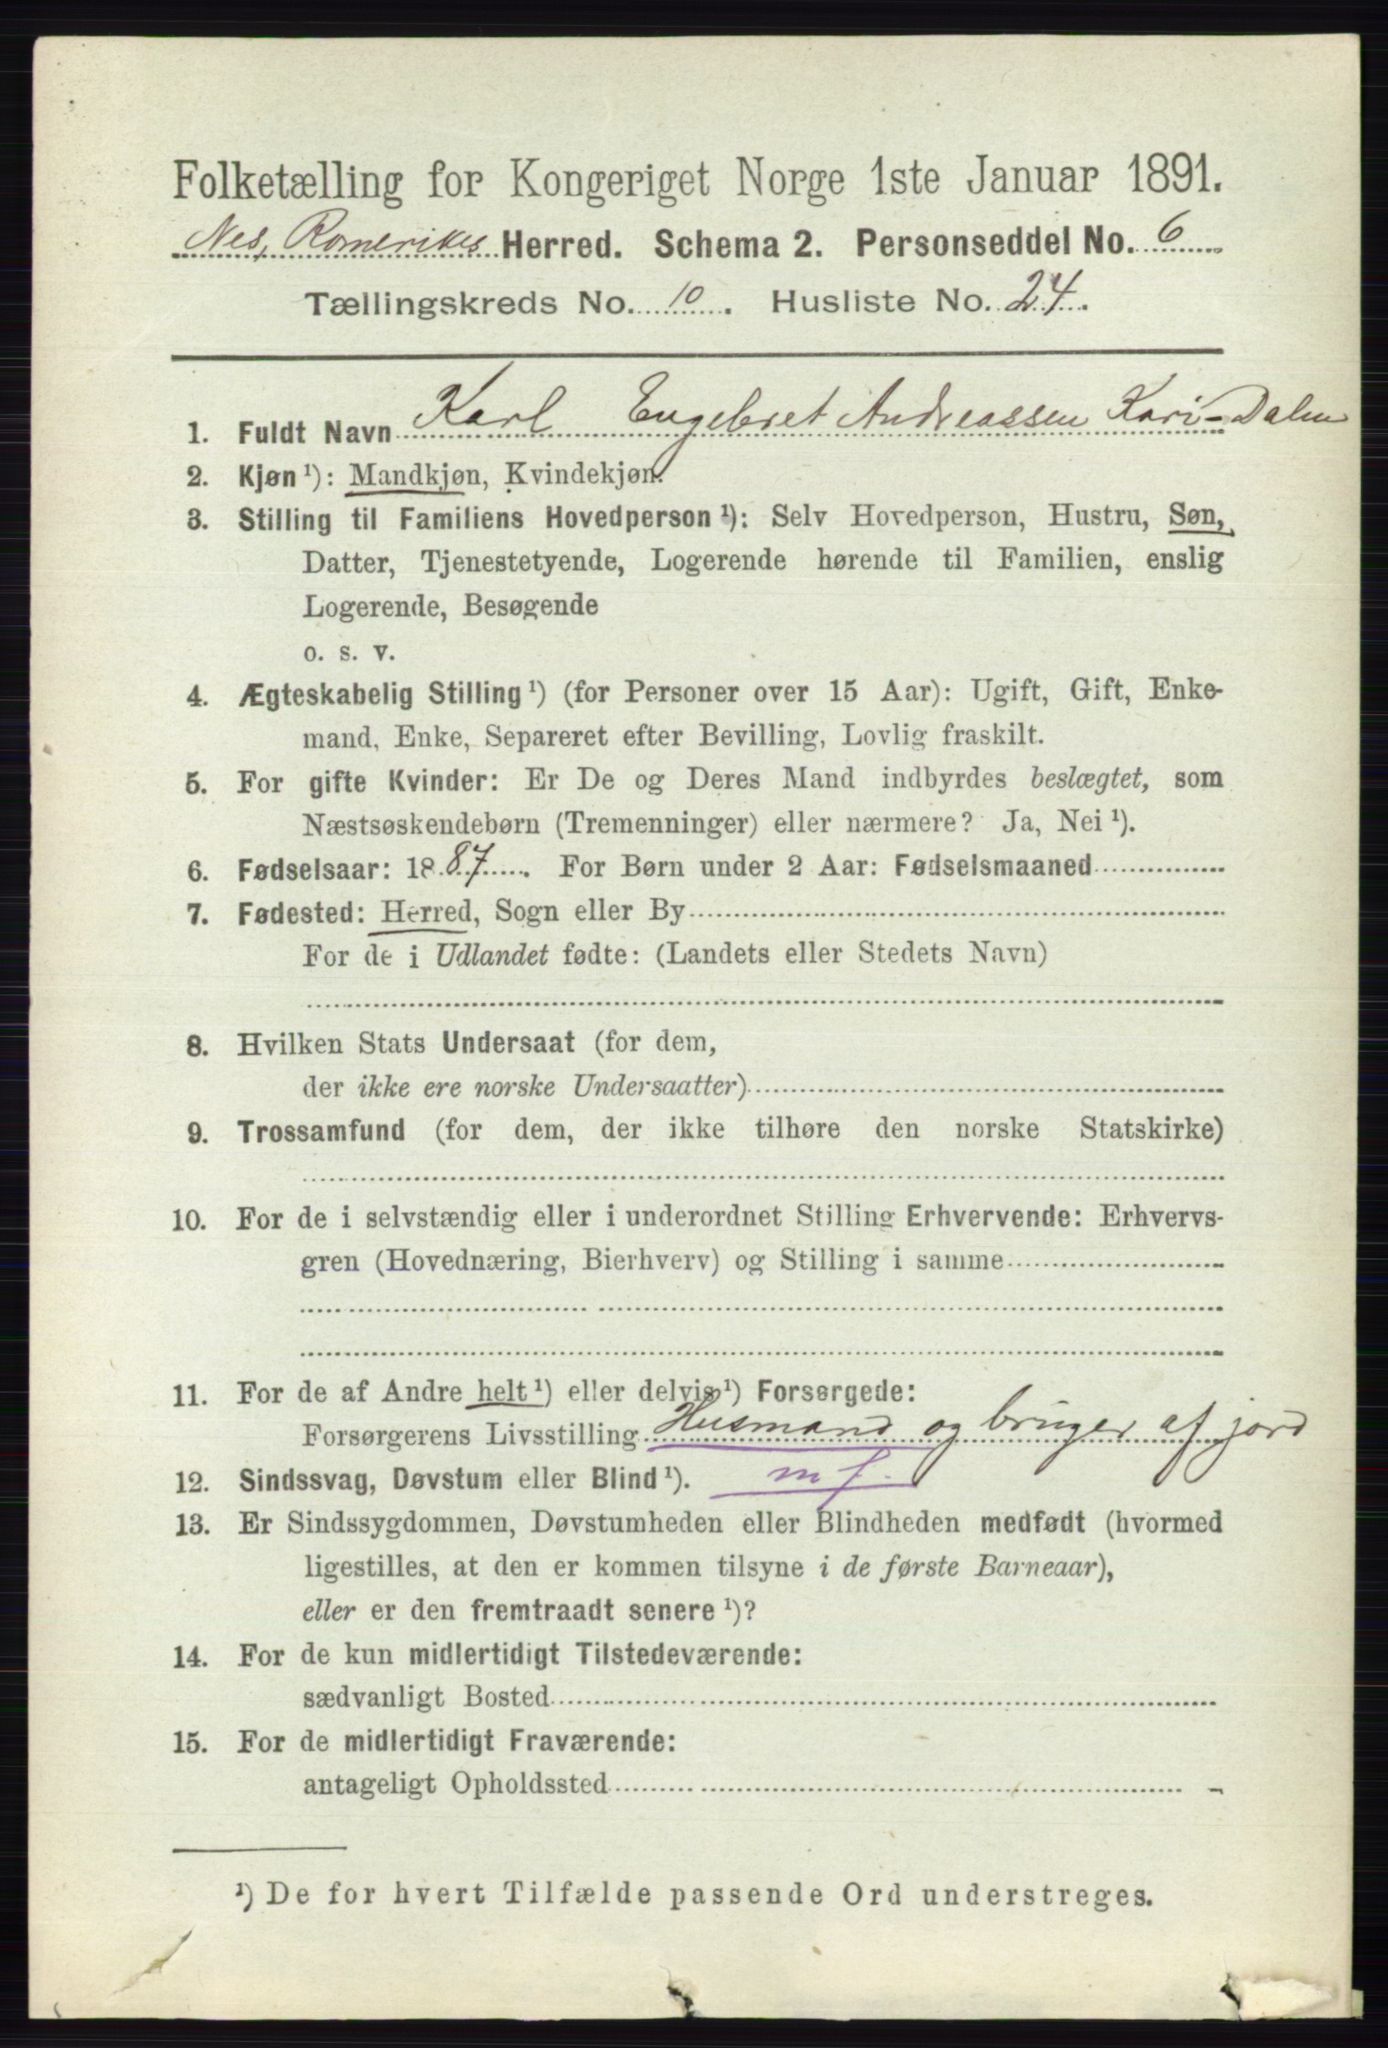 Folketælling for Kongeriget Norge 1ste Januar 1891.
Nes, Romerikes Herred. Schema 2. Personseddel No. 6
Tællingskreds No. 10. Husliste No. 24.
1. Fuldt Navn Karl Engebret Andreassen Kari-Dalen
2. Kjøn ¹): Mandkjøn, Kvindekjøn.
3. Stilling til Familiens Hovedperson ¹): Selv Hovedperson, Hustru, Søn,
Datter, Tjenestetyende, Logerende hørende til Familien, enslig
Logerende, Besøgende
o. s. v.
4. Ægteskabelig Stilling ¹) (for Personer over 15 Aar): Ugift, Gift, Enke-
mand, Enke, Separeret efter Bevilling, Lovlig fraskilt.
5. For gifte Kvinder: Er De og Deres Mand indbyrdes beslægtet, som
Næstsøskendebørn (Tremenninger) eller nærmere? Ja, Nei ¹).
6. Fødselsaar: 1887. For Børn under 2 Aar: Fødselsmaaned
7. Fødested: Herred, Sogn eller By
For de i Udlandet fødte: (Landets eller Stedets Navn)
8. Hvilken Stats Undersaat (for dem,
der ikke ere norske Undersaatter)
9. Trossamfund (for dem, der ikke tilhøre den norske Statskirke)
10. For de i selvstændig eller i underordnet Stilling Erhvervende: Erhvervs-
gren (Hovednæring, Bierhverv) og Stilling i samme
11. For de af Andre helt ¹) eller delvis ¹) Forsørgede:
Forsørgerens Livsstilling Husmand og bruger af jord
12. Sindssvag, Døvstum eller Blind ¹). m f.
13. Er Sindssygdommen, Døvstumheden eller Blindheden medfødt (hvormed
ligestilles, at den er kommen tilsyne i de første Barneaar),
eller er den fremtraadt senere ¹)?
14. For de kun midlertidigt Tilstedeværende:
sædvanligt Bosted
15. For de midlertidigt Fraværende:
antageligt Opholdssted
¹) De for hvert Tilfælde passende Ord understreges.